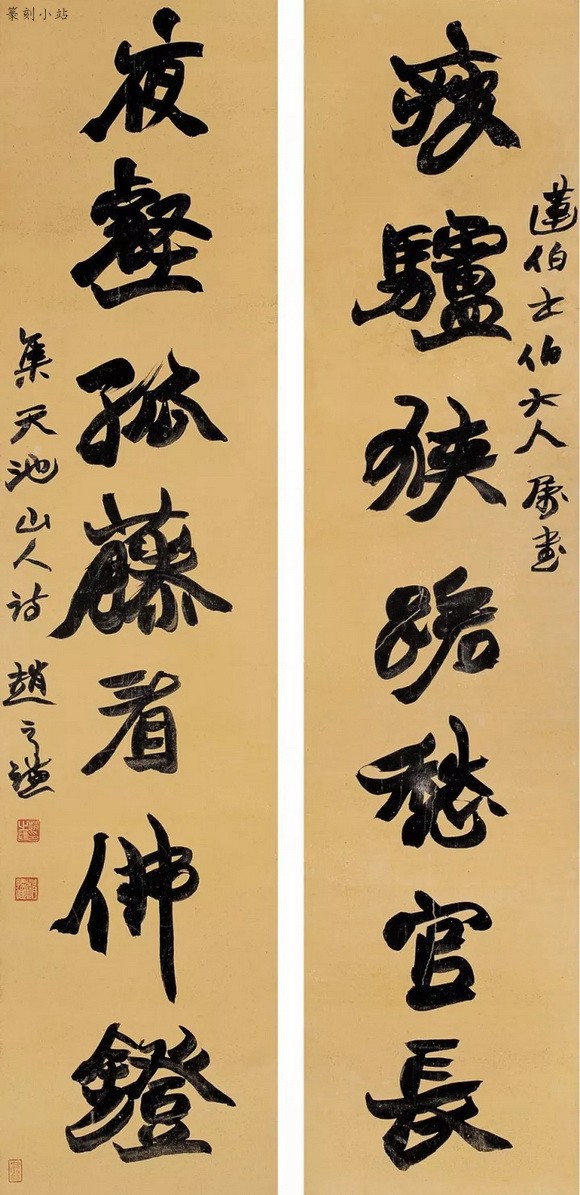 蓮伯士伯大人屬書
疲驢狹路愁官長
夜壑孤藤看佛鐙
集天池山人詩趙之謙
篆刻小站